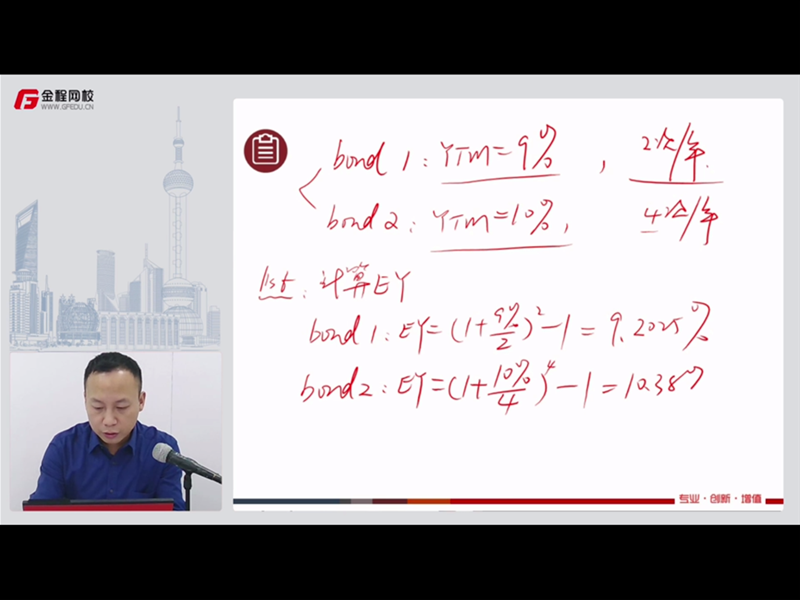 金程网校
WWW.GFEDU.CN
bond 1: YTM=9%, 2次/年.
bond 2: YTM=10%, 4次/年
1ist: 计算EY
bond 1: EY=(1+9%/2)^2-1=9.2025%
bond 2: EY=(1+10%/4)^4-1=10.38%
专业·创新·增值